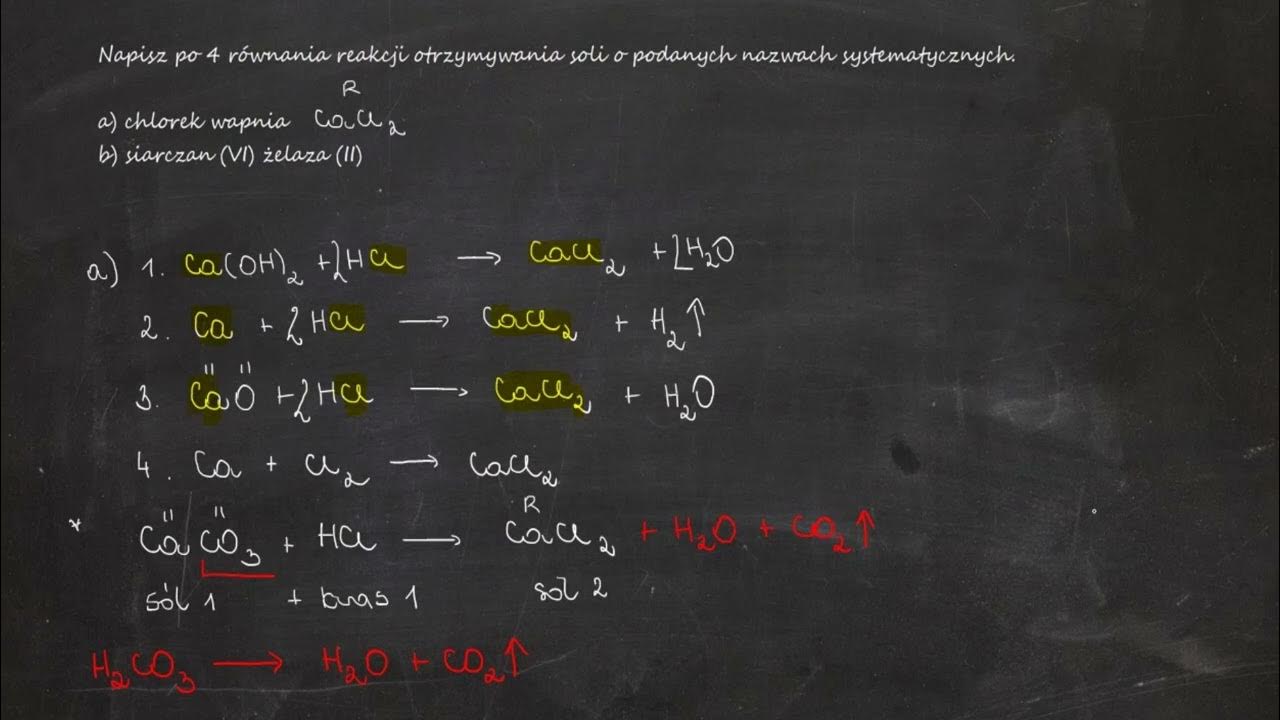 Napisz po 4 równania reakcji otrzymywania soli o podanych nazwach systematycznych.
R
a) chlorek wapnia CaCl₂
b) siarczan (VI) żelaza (II)
a) 1. Ca(OH)₂ + 2HCl → CaCl₂ + 2H₂O
2. Ca + 2HCl → CaCl₂ + H₂↑
II II
3. CaO + 2HCl → CaCl₂ + H₂O
4. Ca + Cl₂ → CaCl₂
II II R
* CaCO₃ + HCl → CaCl₂ + H₂O + CO₂↑
sól 1 + kwas 1 sól 2
H₂CO₃ → H₂O + CO₂↑